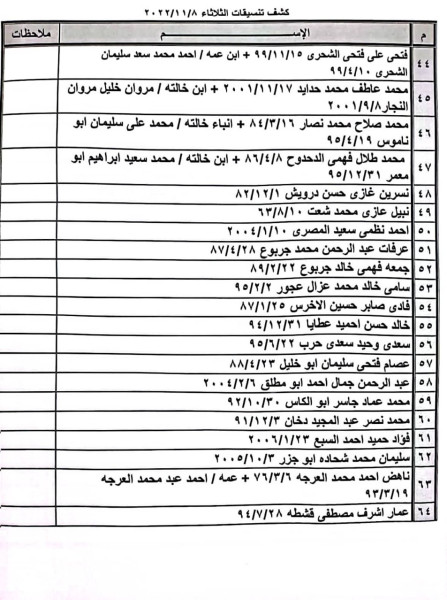 كشف تنسيقات الثلاثاء ٢٠٢٢/١١/٨
م الإســـم ملاحظات
٤٤ فتحى على فتحى الشحرى ٩٩/١١/١٥ + ابن عمه / احمد محمد سعد سليمان
الشحرى ٩٩/٤/١٠
٤٥ محمد عاطف محمد حدايد ٢٠٠١/١١/١٧ + ابن خالته / مروان خليل مروان
النجار ٢٠٠١/٩/٨
٤٦ محمد صلاح محمد نصار ٨٤/٣/١٦ + انباء خالته / محمد على سليمان ابو
ناموس ٩٥/٤/١٩
٤٧ محمد طلال فهمى الدحدوح ٨٦/٤/٨ + ابن خالته / محمد سعيد ابراهيم ابو
معمر ٩٥/١٢/٣١
٤٨ نسرين غازى حسن درويش ٨٢/١٢/١
٤٩ نبيل عازى محمد شعت ٦٣/٨/١٠
٥٠ احمد نظمى سعيد المصرى ٢٠٠٤/١/١٠
٥١ عرفات عبد الرحمن محمد جربوع ٨٧/٤/٢٨
٥٢ جمعه فهمى خالد جربوع ٨٩/٢/٢٢
٥٣ سامى خالد محمد عزال عجور ٩٥/٢/٢
٥٤ فادى صابر حسين الاخرس ٨٧/١/٢٥
٥٥ خالد حسن احميد عطايا ٩٤/١٢/٣١
٥٦ سعدى وحيد سعدى حرب ٩٥/٦/٢٢
٥٧ عصام فتحى سليمان ابو خليل ٨٨/٤/٢٣
٥٨ عبد الرحمن جمال احمد ابو مطلق ٢٠٠٤/٢/٦
٥٩ محمد عماد جاسر ابو الكاس ٩٢/١٠/٣٠
٦٠ محمد نصر عبد المجيد دخان ٩١/١٢/٣
٦١ فؤاد حميد احمد السبع ٢٠٠٦/١/٢٣
٦٢ سليمان محمد شحاده ابو جزر ٢٠٠٥/١٠/٣
٦٣ ناهض احمد محمد العرجه ٧٦/٣/٦ + عمه / احمد عبد محمد العرجه
٩٣/٣/١٩
٦٤ عمار اشرف مصطفى قشطه ٩٤/٧/٢٨